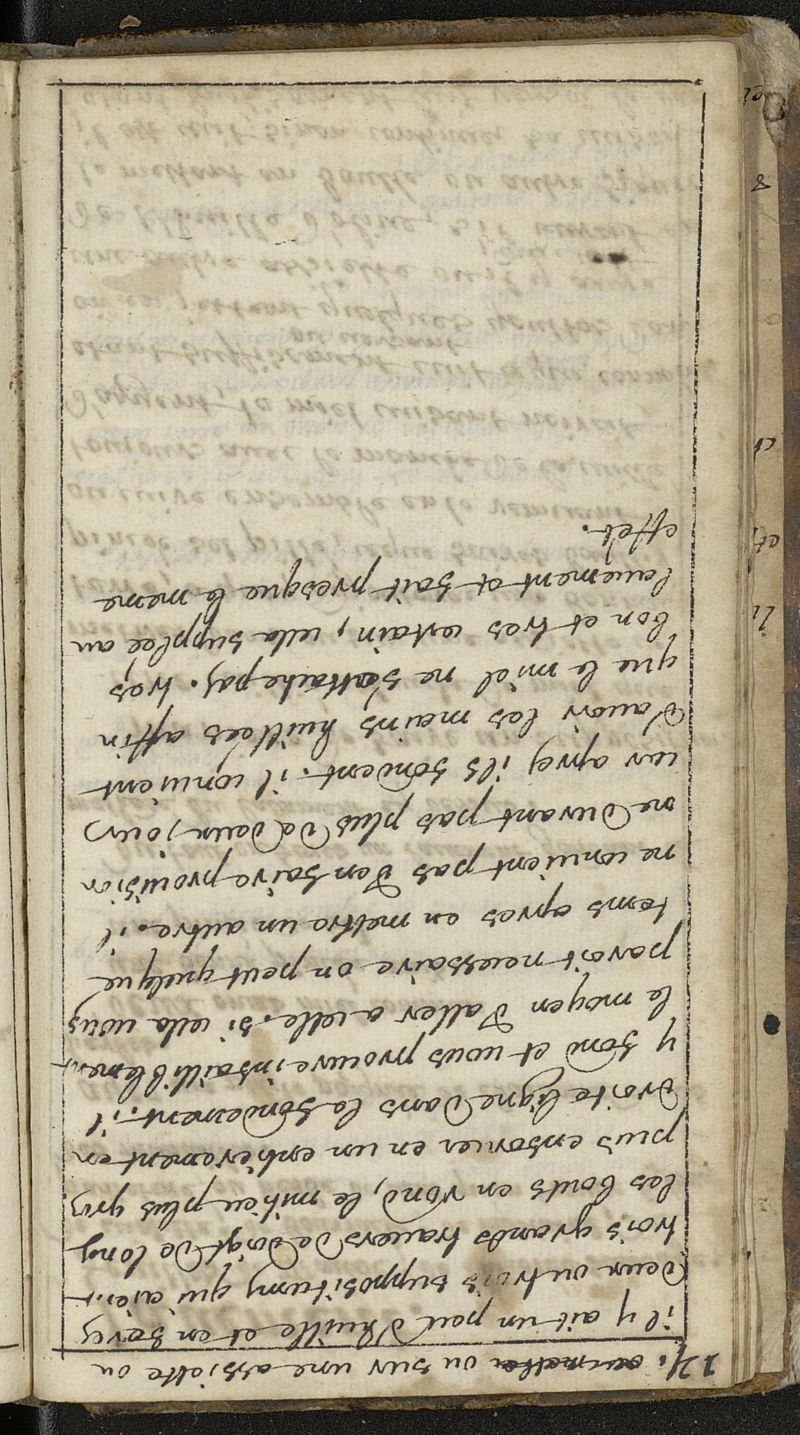 14. ou sur une assiette ou
il y ait un peu d'huille et en ferez
deux ou trois suppositum qui aient
trois grands travers de doigt de long
les bouts en rond, le milieu plus gros
puis enfoncer en un entierement en
droite ligne dans le fondement. il
y fond et vous procure infailliblement
le moyen d'aller a selle. si cella vous
paroit necessaire on peut quelque
tems apres en mettre un autre. il
ne convient pas d'en faire provision
ne durant pas plus de deux jours
car apres ils fondent. il convient
d'avoir les mains huillées affin
que le miel ne s'attache pas. tres
bon et tres certain, cella supplee au
lavement et fait presque le meme
effet.